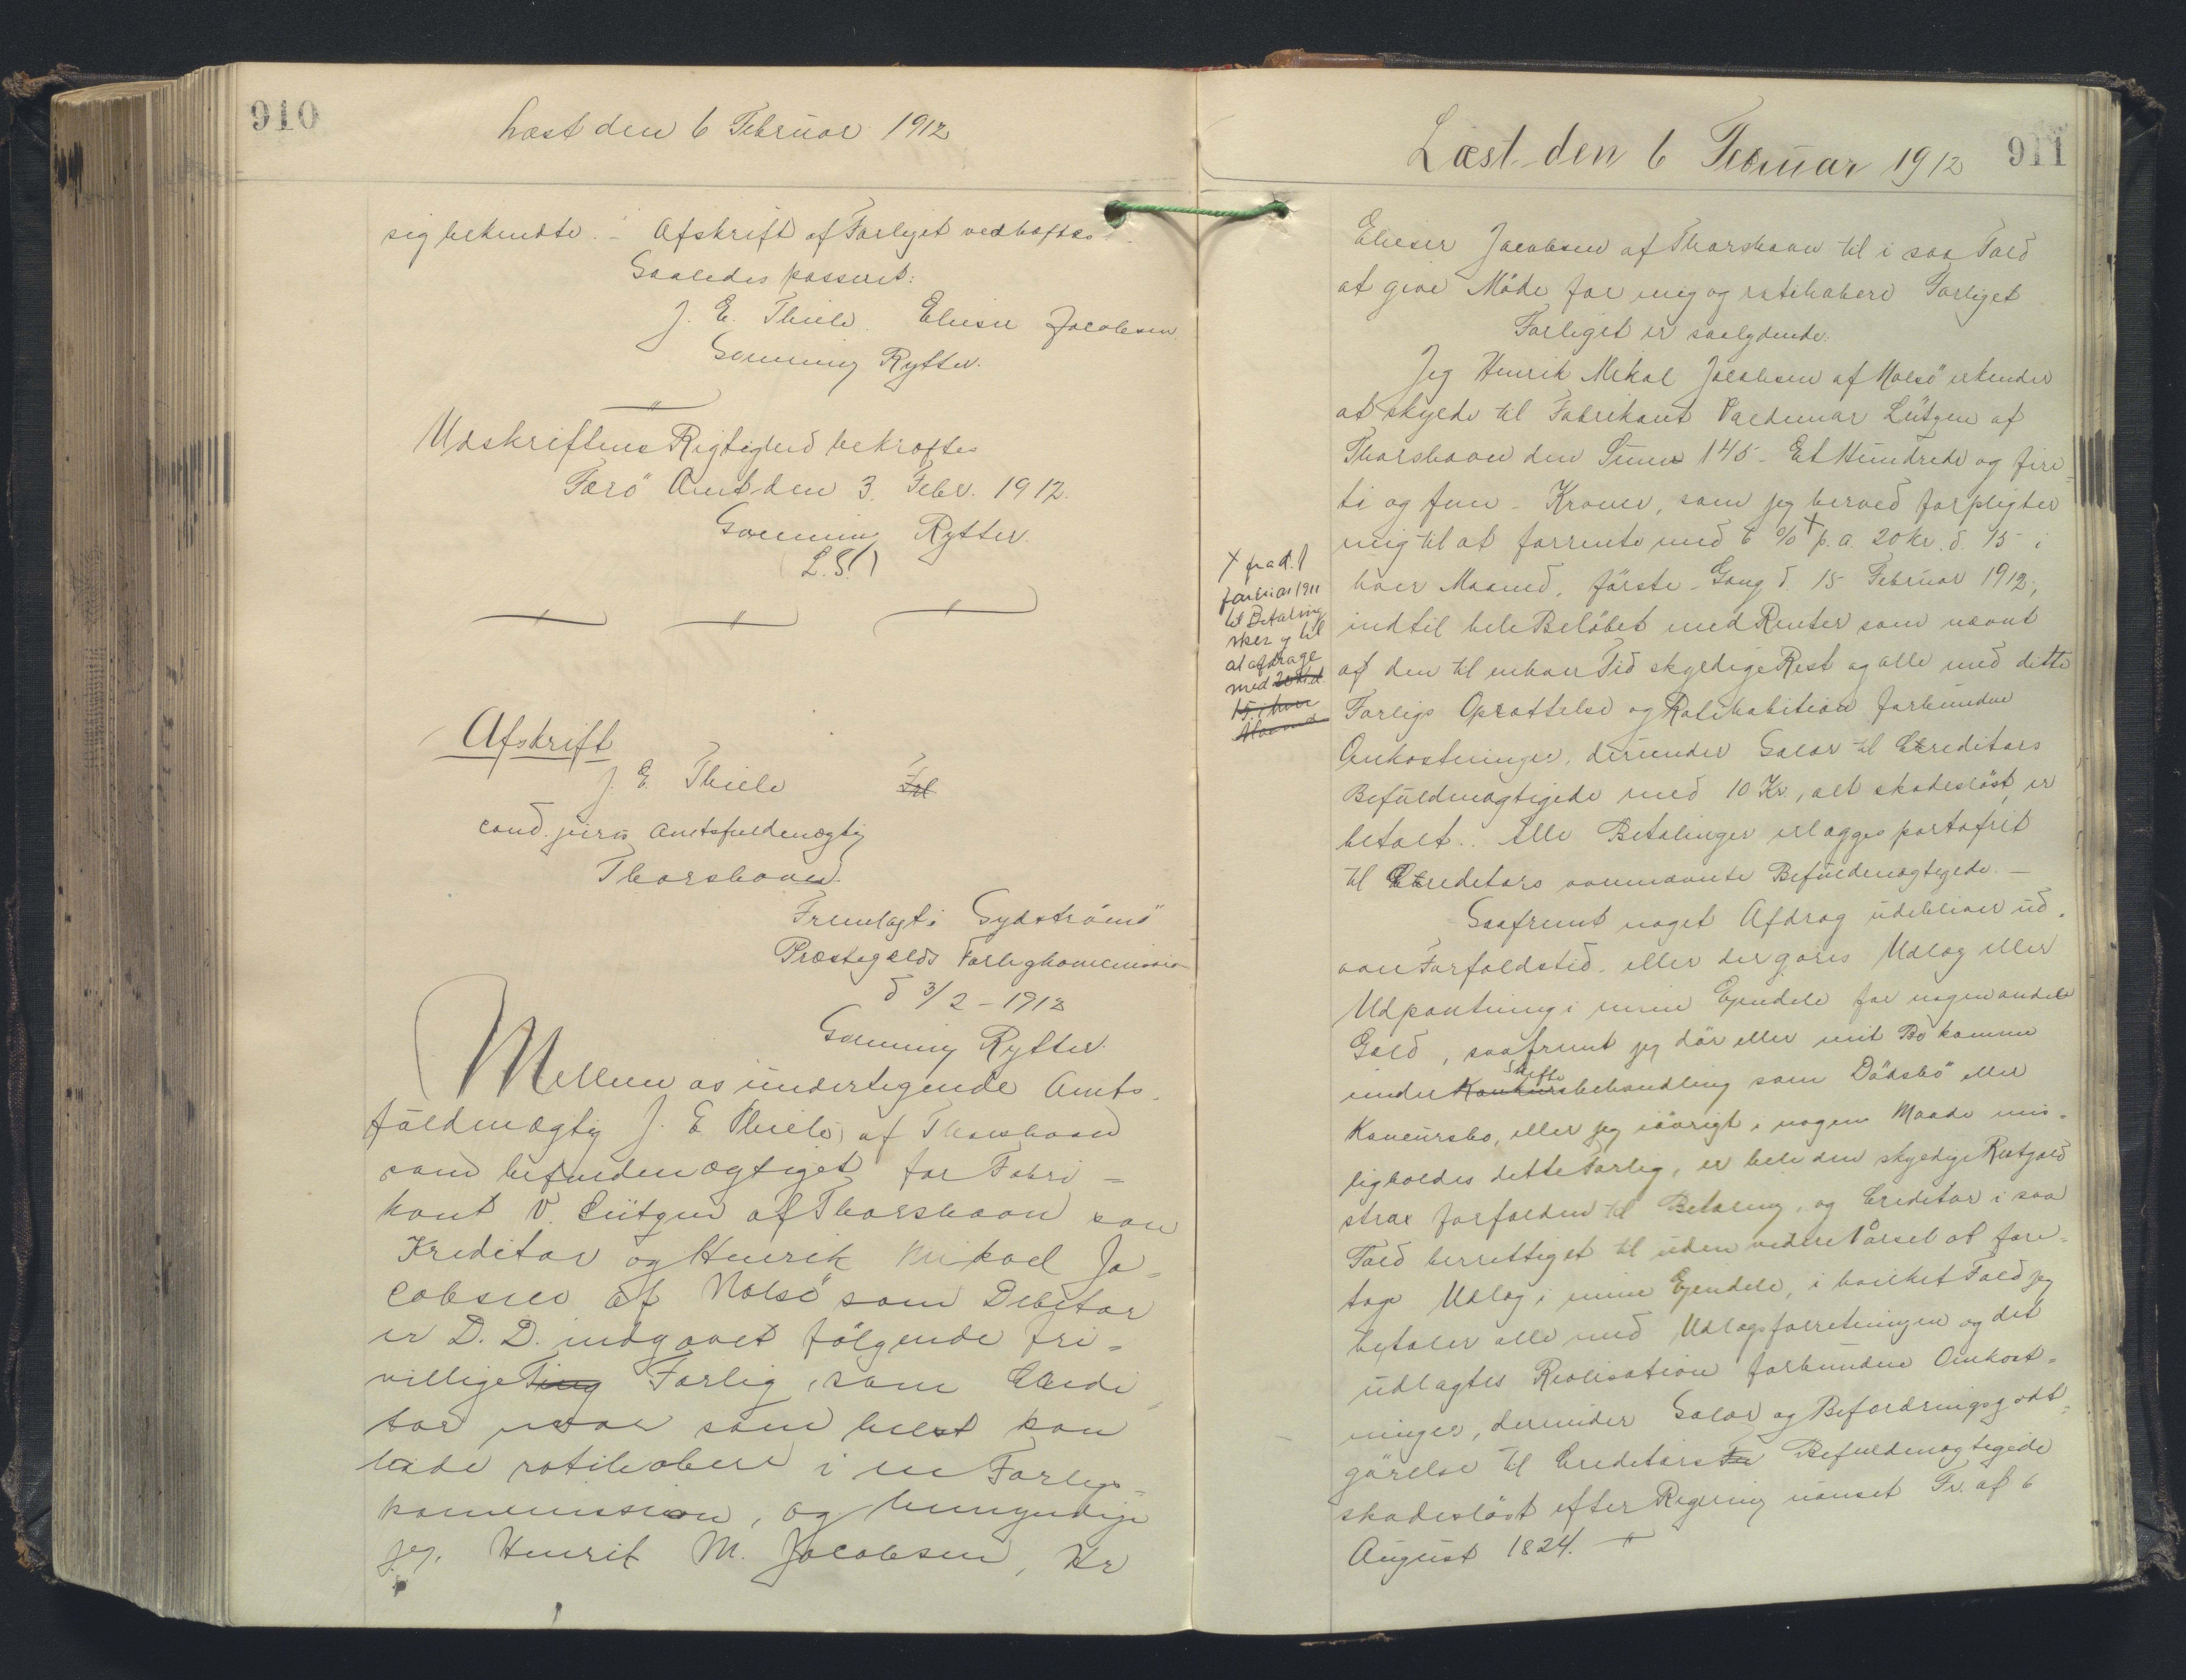 910
Læst den 6 Februar 1912
sig bekendte. - Afskrift af Forliget vedhæftes.
Saaledes passeret:
J. E. Thiele. Elieser Jacobsen.
Gemming Rytter.
Udskriftens Rigtighed bekræftes
Færö Amt den 3. Febr. 1912.
Rytter.
(L.S.)
Afskrift
J. E. Thiele
cand. juris Amtsfuldmægtig
Thorshavn.
Fremlagt i Sydströmö
Præstegælds Forligskommission
d 3/2 - 1912
Rytter.
Mellem os undertegnede Amts-
fuldmægtig J. E. Thiele af Thorshavn
som befuldmægtiget for Fabri=
kant V. Lützen af Thorshavn som
Kreditor og Henrik Mikael Ja=
cobsen af Nolsö som Debitor
er D. D. indgaaet fölgende fri=
villige Ting Forlig, som Credi=
tor naar som helst kan
lade ratihabere i en Forligs=
kommission, og bemyndiger
jeg, Henrik M. Jacobsen, Hr
Læst den 6 Februar 1912
911
Elieser Jacobsen af Thorshavn til i saa Fald
at give Möde for mig og ratihabere Forliget
Forliget er saalydende:
Jeg Henrik Mikal Jacobsen af Nolsö erkender
at skylde til Fabrikant Valdemar Lützen af
Thorshavn den Sum 145 - Et Hundrede og fire=
ti og fem - Kroner, som jeg herved forpligter
mig til at forrente med 6 % + p. a. 20 Kr. d. 15 i
hver Maaned, förste Gang d. 15 Februar 1912,
indtil hele Belöbet med Renter som nævnt
af den til enhver Tid skyldige Rest og alle med dette
Forligs Oprettelse og Ratihabition forbundne
Omkostninger, derunder Salær til Creditors
Befuldmægtigede med 10 Kr., alt skadeslöst, er
betalt. Alle Betalinger erlægges portofrit
til Creditors ovennævnte Befuldmægtigede. -
Saafremt noget Afdrag udebliver ud=
over Forfaldstid, eller der göres Udlæg eller
Udpantning i mine Ejendele for nogen anden
Gæld, saafremt jeg dör eller mit Bo kommer
under Konkurs Skiftebehandling som Dödsbo eller
Konkursbo, eller jeg iövrigt i nogen Maade mis=
ligholdes dette Forlig, er hele den skyldige Restgæld
strax forfalden til Betaling, og Creditor i saa
Fald berettiget til uden videre Varsel at fore=
tage Udlæg i mine Ejendele, i hvilket Fald jeg
betaler alle med Udlægsforretningen og det
udlagtes Realisation forbundne Omkost=
ninger, derunder Salær og Befordringsgodt=
görelse til Creditors Befuldmægtigede
skadeslöst efter Regning uanset Fr. af 6
August 1824.
+ fra d. 1
Januar 1911
til Betaling
sker og til
at afdrage
med 20 Kr. d.
15. i hver
Maaned